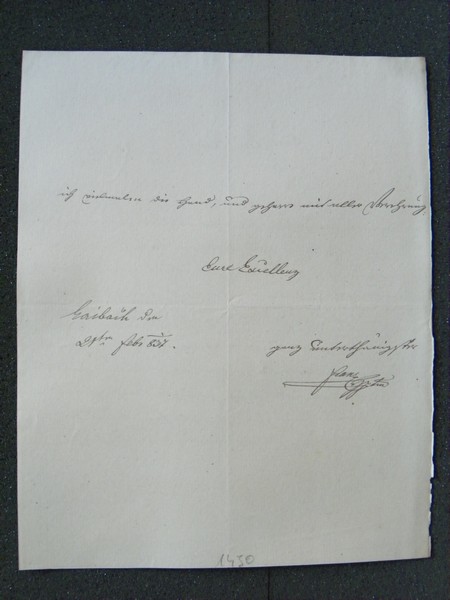 ich vielmalen die Hand, und geharre mit aller Verehrung
Eure Excellenz
Gaibach den
21ten Febr 837.
ganz unterthänigster
Franz
1430